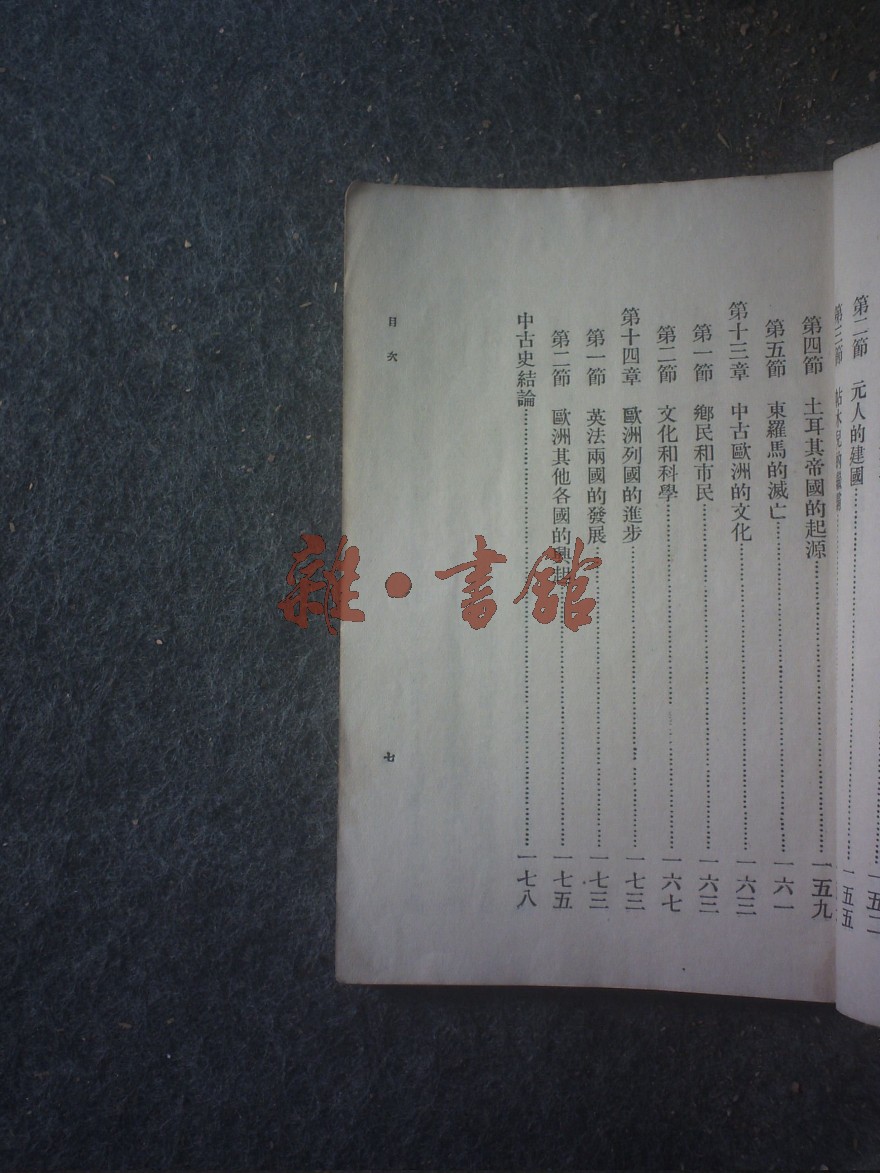 一五二
第二節 元人的建國 一五五
第三節 帖木兒的
第四節 土耳其帝國的起源 一五九
第五節 東羅馬的滅亡 一六一
第十三章 中古歐洲的文化 一六三
第一節 鄉民和市民 一六三
第二節 文化和科學 一六七
第十四章 歐洲列國的進步 一七三
第一節 英法兩國的發展 一七三
第二節 歐洲其他各國的興起 一七五
中古史結論 一七八
目次 七
雜·書館